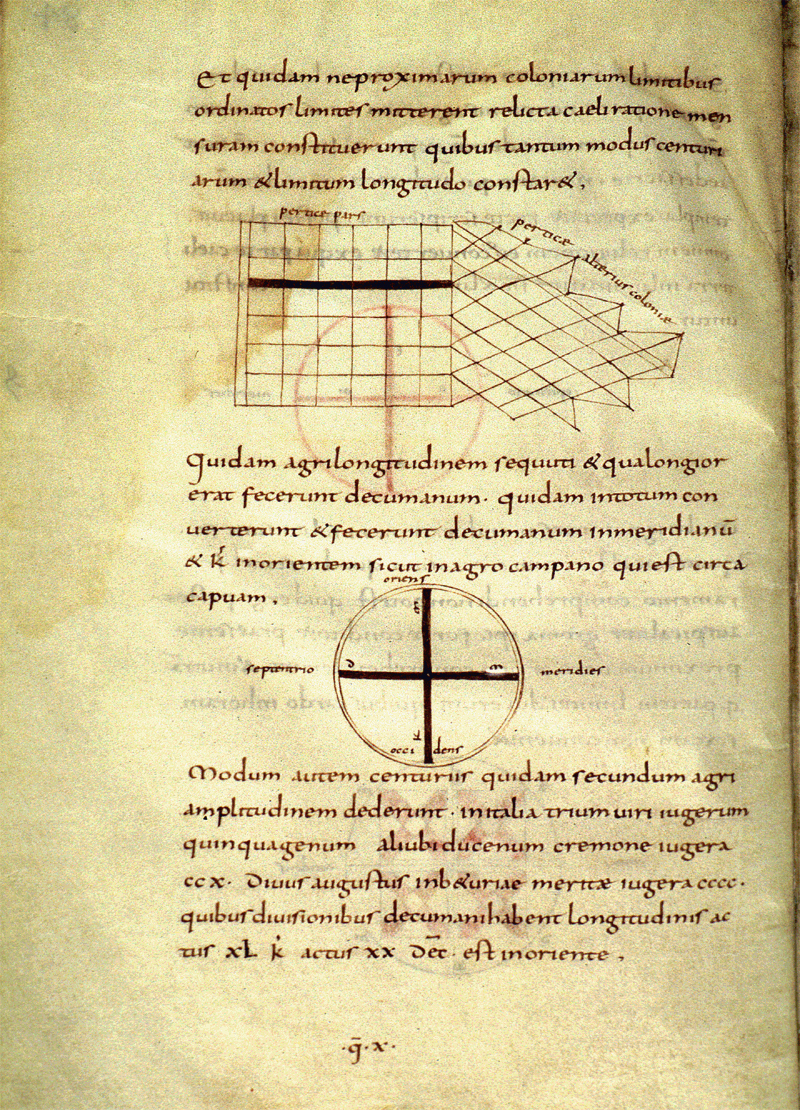 Et quidam neproximarum coloniarum limitibus
ordinatos limites mitterent relicta caeli ratione men
suram constituerunt quibus tantum modus centuri
arum & limitum longitudo constar&,
pertice pars
pertice alterius coloniae
Quidam agri longitudinem secuti & qua longior
erat fecerunt decumanum · quidam intotum con
uerterunt & fecerunt decumanum inmeridianū
& k inorientem sicut inagro campano qui est circa
capuam,
oriens
septentrio
D
m
meridies
occi dens
Modum autem centuriis quidam secundum agri
amplitudinem dederunt · initalia triumuiri iugerum
quinquagenum aliubi ducenum cremone iugera
ccx · Diuus augustus inb&uriae meritae iugera cccc ·
quibus diuisionibus decumani habent longitudinis ac
tus xl k actus xx dec̄ · est inoriente,
· q̄ · x ·